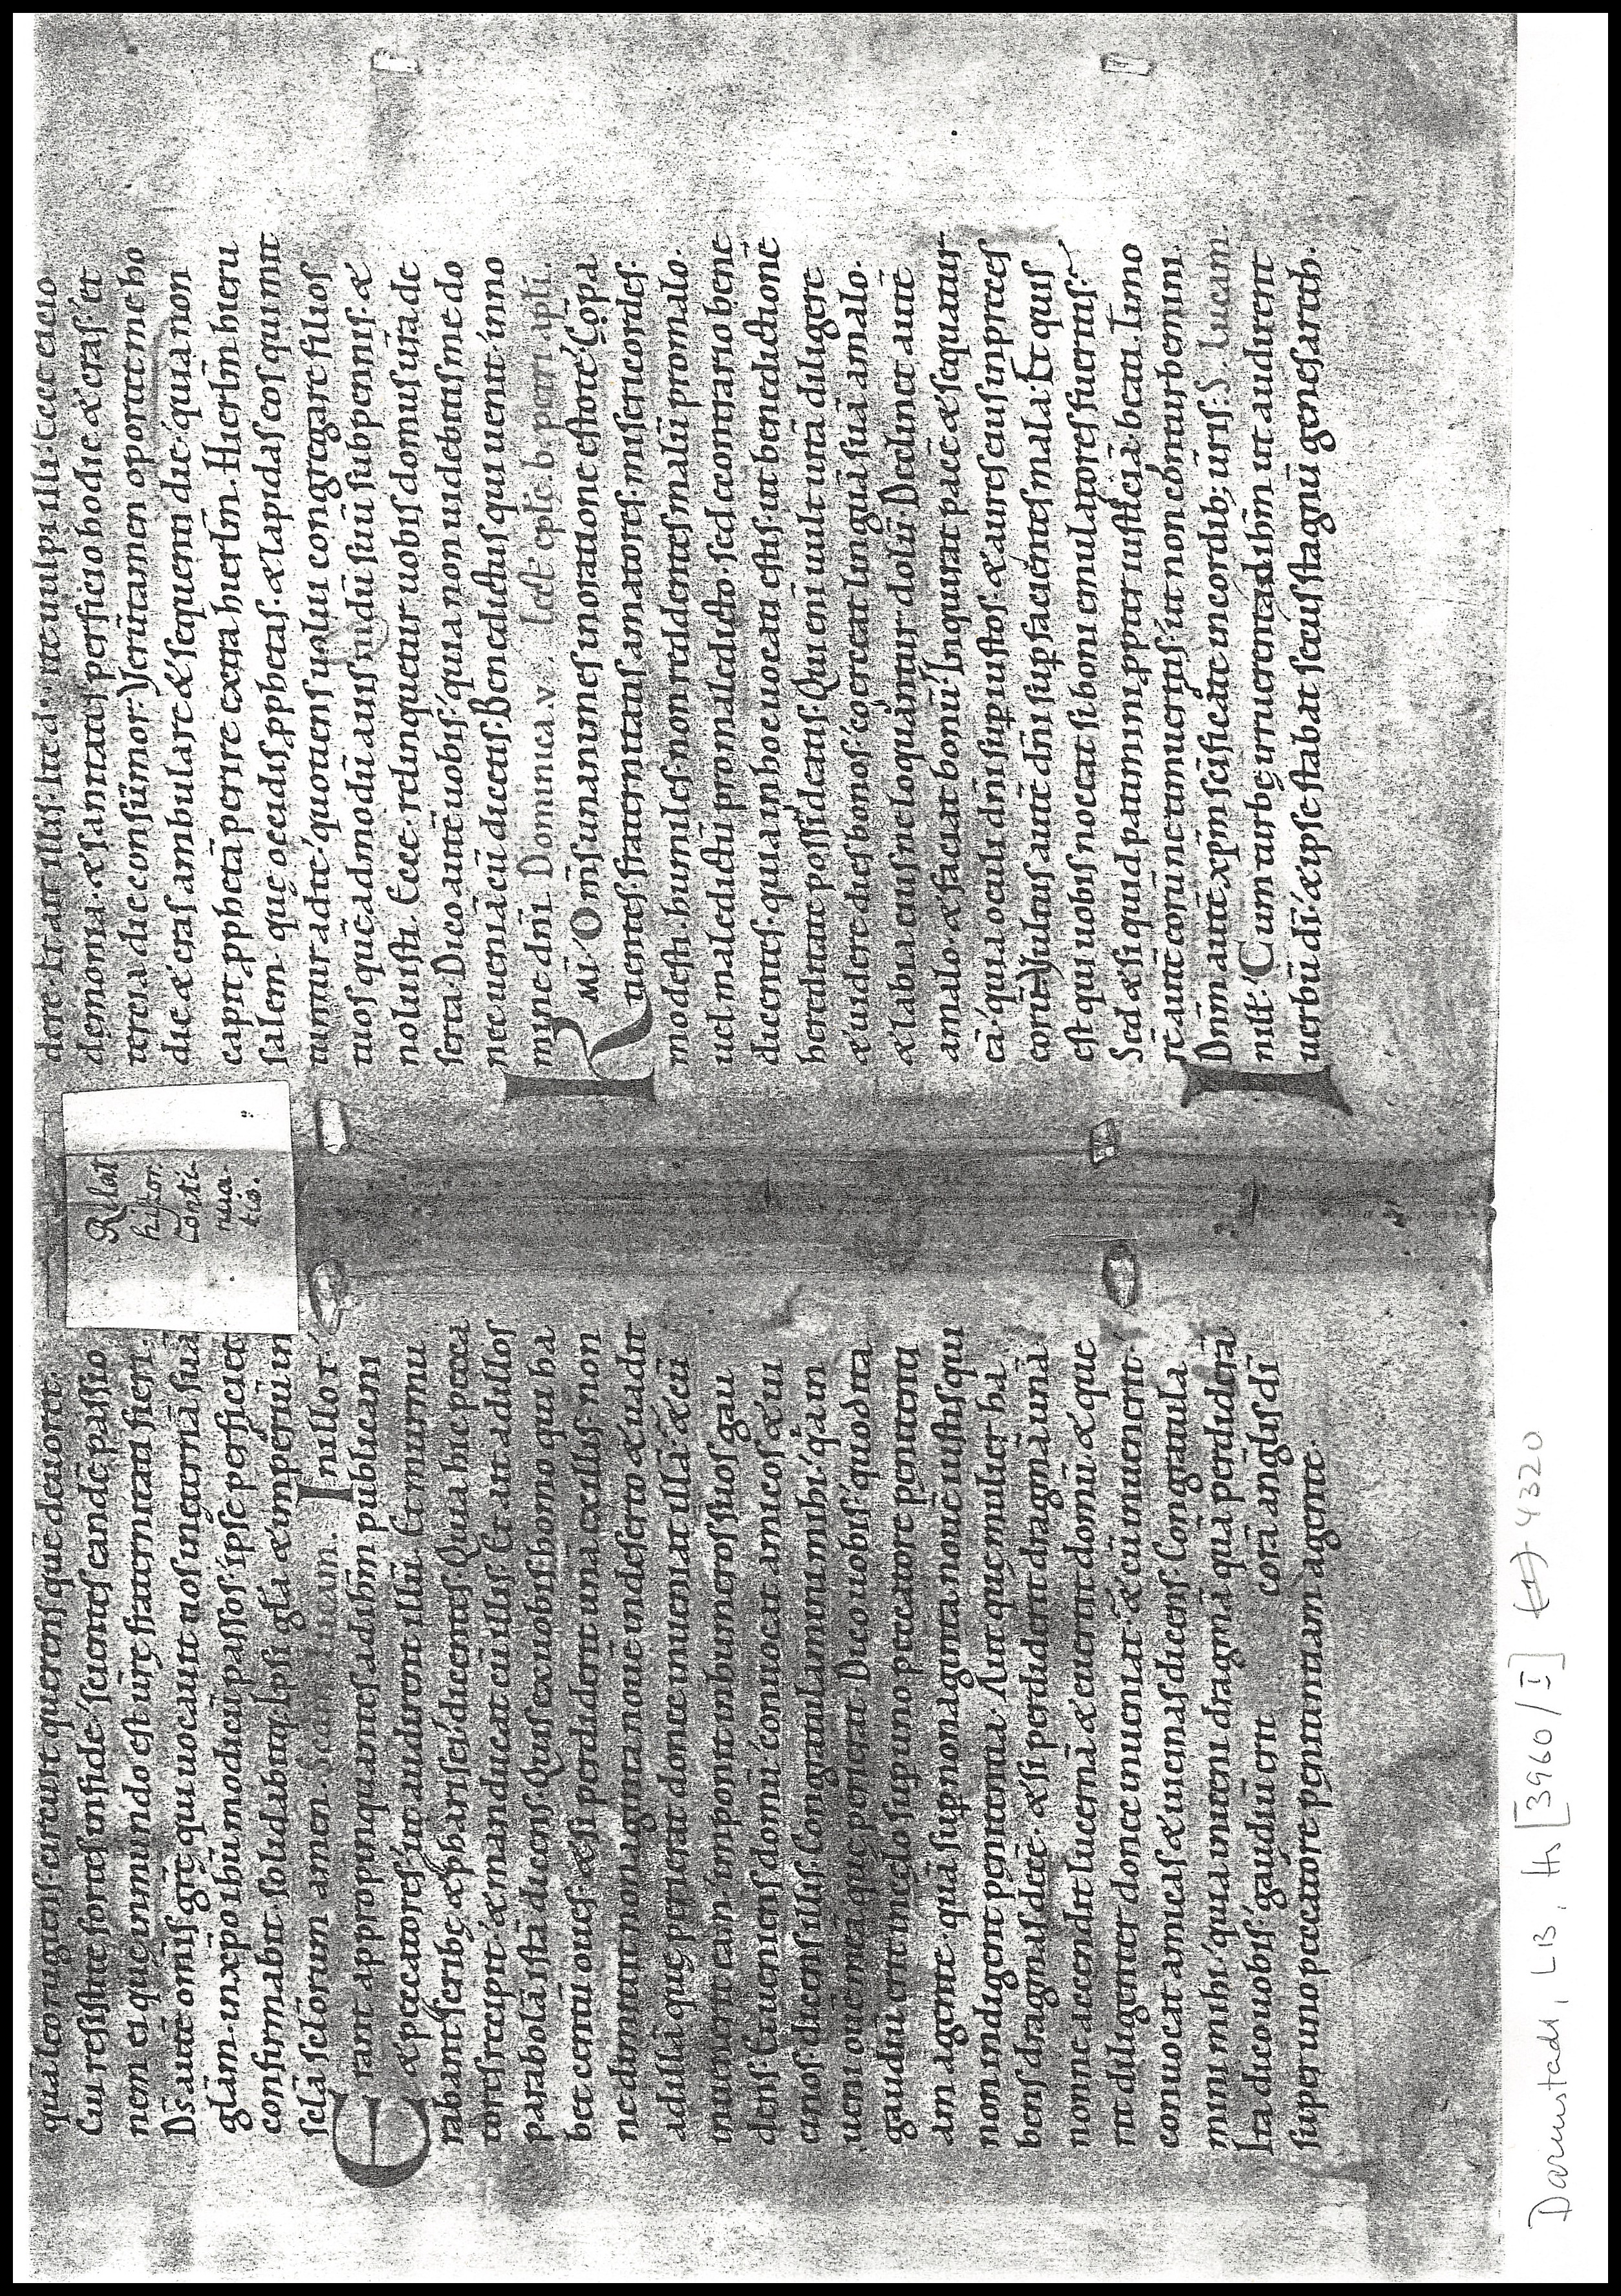 qua leo rugiens circuit querens quē deuoret.
Cui resistite fortes in fide. scientes eandē passio
nem ei quę in mundo est ur̄e fraternitati fieri.
D̄s autē omnis gr̄ę qui uocauit nos in ęternā suā
glām in xp̄o ihu modicū passos ipse perficiet
confirmabit. solidabitq; Ipsi gl̄a & imperiū in
scl̄a scl̄orum amen. Lucam. In illo t
Erant appropinquantes ad ihm̄ publicani
& peccatores ut audirent illū. Et murmu
rabant scribę & pharisei dicentes. Quia hic pecca
tores recipit & manducat cū illis. Et ait ad illos
parabolā istā dicens. Quis ex uobis homo qui ha
bet centū oues. & si perdiderit unā ex illis. non
ne dimittit nonaginta nouē in deserto & uadit
ad illā quę perierat donec inueniat illā & cū
inuenerit eam imponit in humeros suos gau
dens. Et ueniens domū conuocat amicos & ui
cinos dicens illis. Congratulamini mihi. q̄a in
ueni ouē meā quę perierat. Dico uobis quod ita
gaudiū erit in cęlo sup uno peccatore penitenti
am agente. quā sup nonaginta nouē iustis qui
non indigent penitentia. Aut quę mulier ha
bens dragmas decē. & si perdiderit dragmā unā
nonne accendit lucernā & euerrit domū & que
rit diligenter donec inueniat. & cū inuenerit.
conuocat amicas & uicinas dicens. Congratula
mini mihi. quia inueni dragmā quā perdiderā
Ita dico uobis gaudiū erit corā anglis dī
super uno peccatore penitentiam agente.
Rlat
histor.
Conti
nua
tio.
dere. Et ait illis. Ite dicite uulpi illi. Ecce eicio
demonia. & sanitates perficio hodie & cras. et
tertia die consūmor. Verūtamen oportet me ho
die & cras ambulare & sequenti die. quia non
capit p̱phetā perire extra hierlm̄. Hierlm̄ hieru
salem. quę occidis p̱phetas. & lapidas eos qui mit
tuntur ad te. quotiens uolui congregare filios
tuos quēadmodū auis nidū suū sub pennis. &
noluisti. Ecce relinquetur uobis domus ur̄a de
serta. Dico autē uobis. quia non uidebitis me do
nec ueniā cū dicetis. Benedictus qui uenit in no
mine dn̄i. Dominica. v. Lect̄ epl̄e. b. petri apl̄i.
Kmī. Om̄s unanimes in oratione estote. Cōpa
tientes. fraternitatis amatores. misericordes.
modesti. humiles. non reddentes malū pro malo.
uel maledictū pro maledicto. sed e contrario bene
dicentes. quia in hoc uocati estis. ut benedictionē
hereditate possideatis. Qui enī uult uitā diligere
& uidere dies bonos. coerceat linguā suā a malo.
& labia eius ne loquantur dolū. Declinet autē
a malo. & faciat bonū. Inquirat pacē & sequatur
eā. quia oculi dn̄i sup iustos. & aures eius in preces
eorū. Vultus autē dn̄i sup facientes mala. Et quis
est qui uobis noceat. si boni emulatores fueritis?
Sed & si quid patimini p̱pter iustitiā. beati. Timo
rē autē eorū ne timueritis. ut non conturbemini.
Dn̄m autē xp̄m scificate in cordib; ur̄is. S. Lucam.
In ill t. Cum turbę irruerent ad ihm̄ ut audirent
uerbū dī. & ipse stabat secus stagnū genesareth.
Darmstadt, LB, Hs [3960/I] (1) 4320